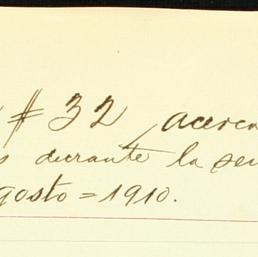 # 32 acerca
s durante la sem
gosto = 1910.